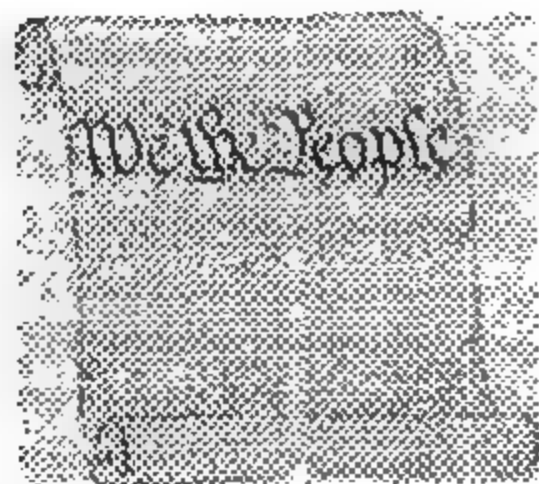 We the People